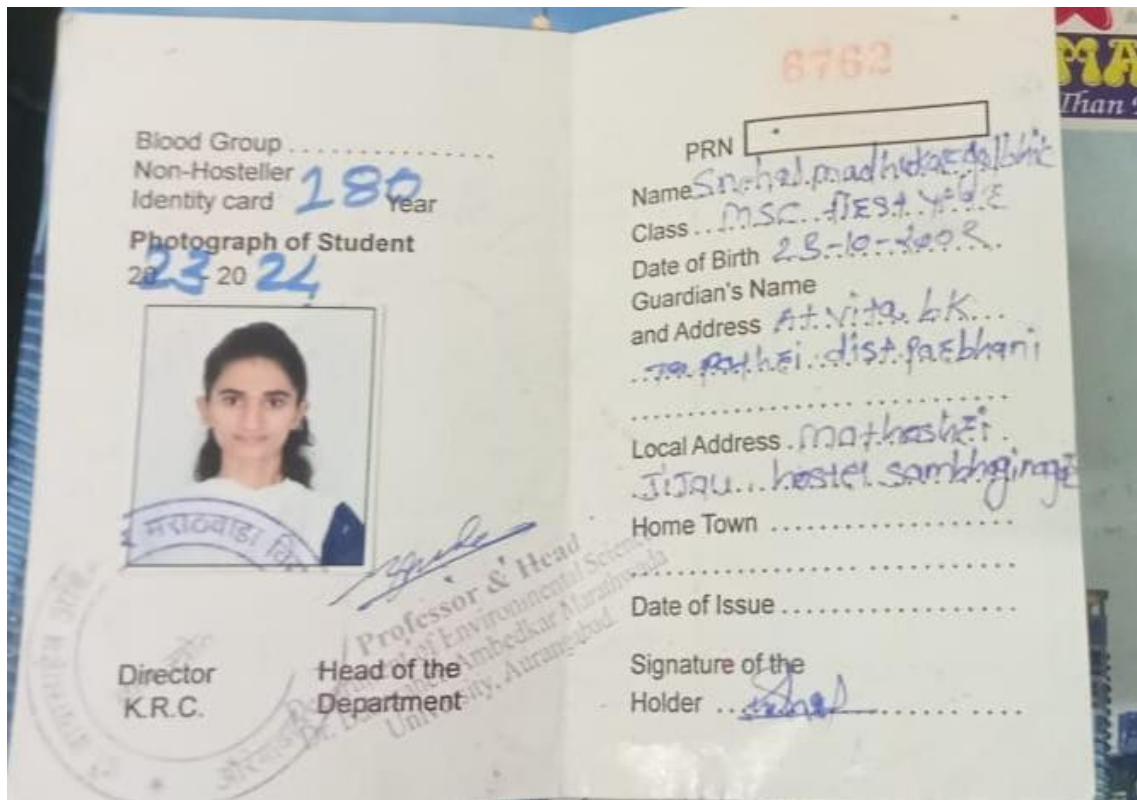 Blood Group ..................
Non-Hosteller
Identity card 180 Year
Photograph of Student
2023-2024
मराठवाडा
Professor & Head
Department of Environmental Science
Dr. Ambedkar Marathwada
University, Aurangabad.
Director
K.R.C.
Head of the
Department
6762
PRN
Name Snehal madhukar galbhit
Class .. MSC. first year
Date of Birth 23-10-2002
Guardian's Name
and Address At. vita. bk...
Ta. Pathri. dist. parbhani
Local Address . Mathoshri.
Jijau... hostel Sambhajinagar
Home Town ....................
Date of Issue ....................
Signature of the
Holder
MA
Than